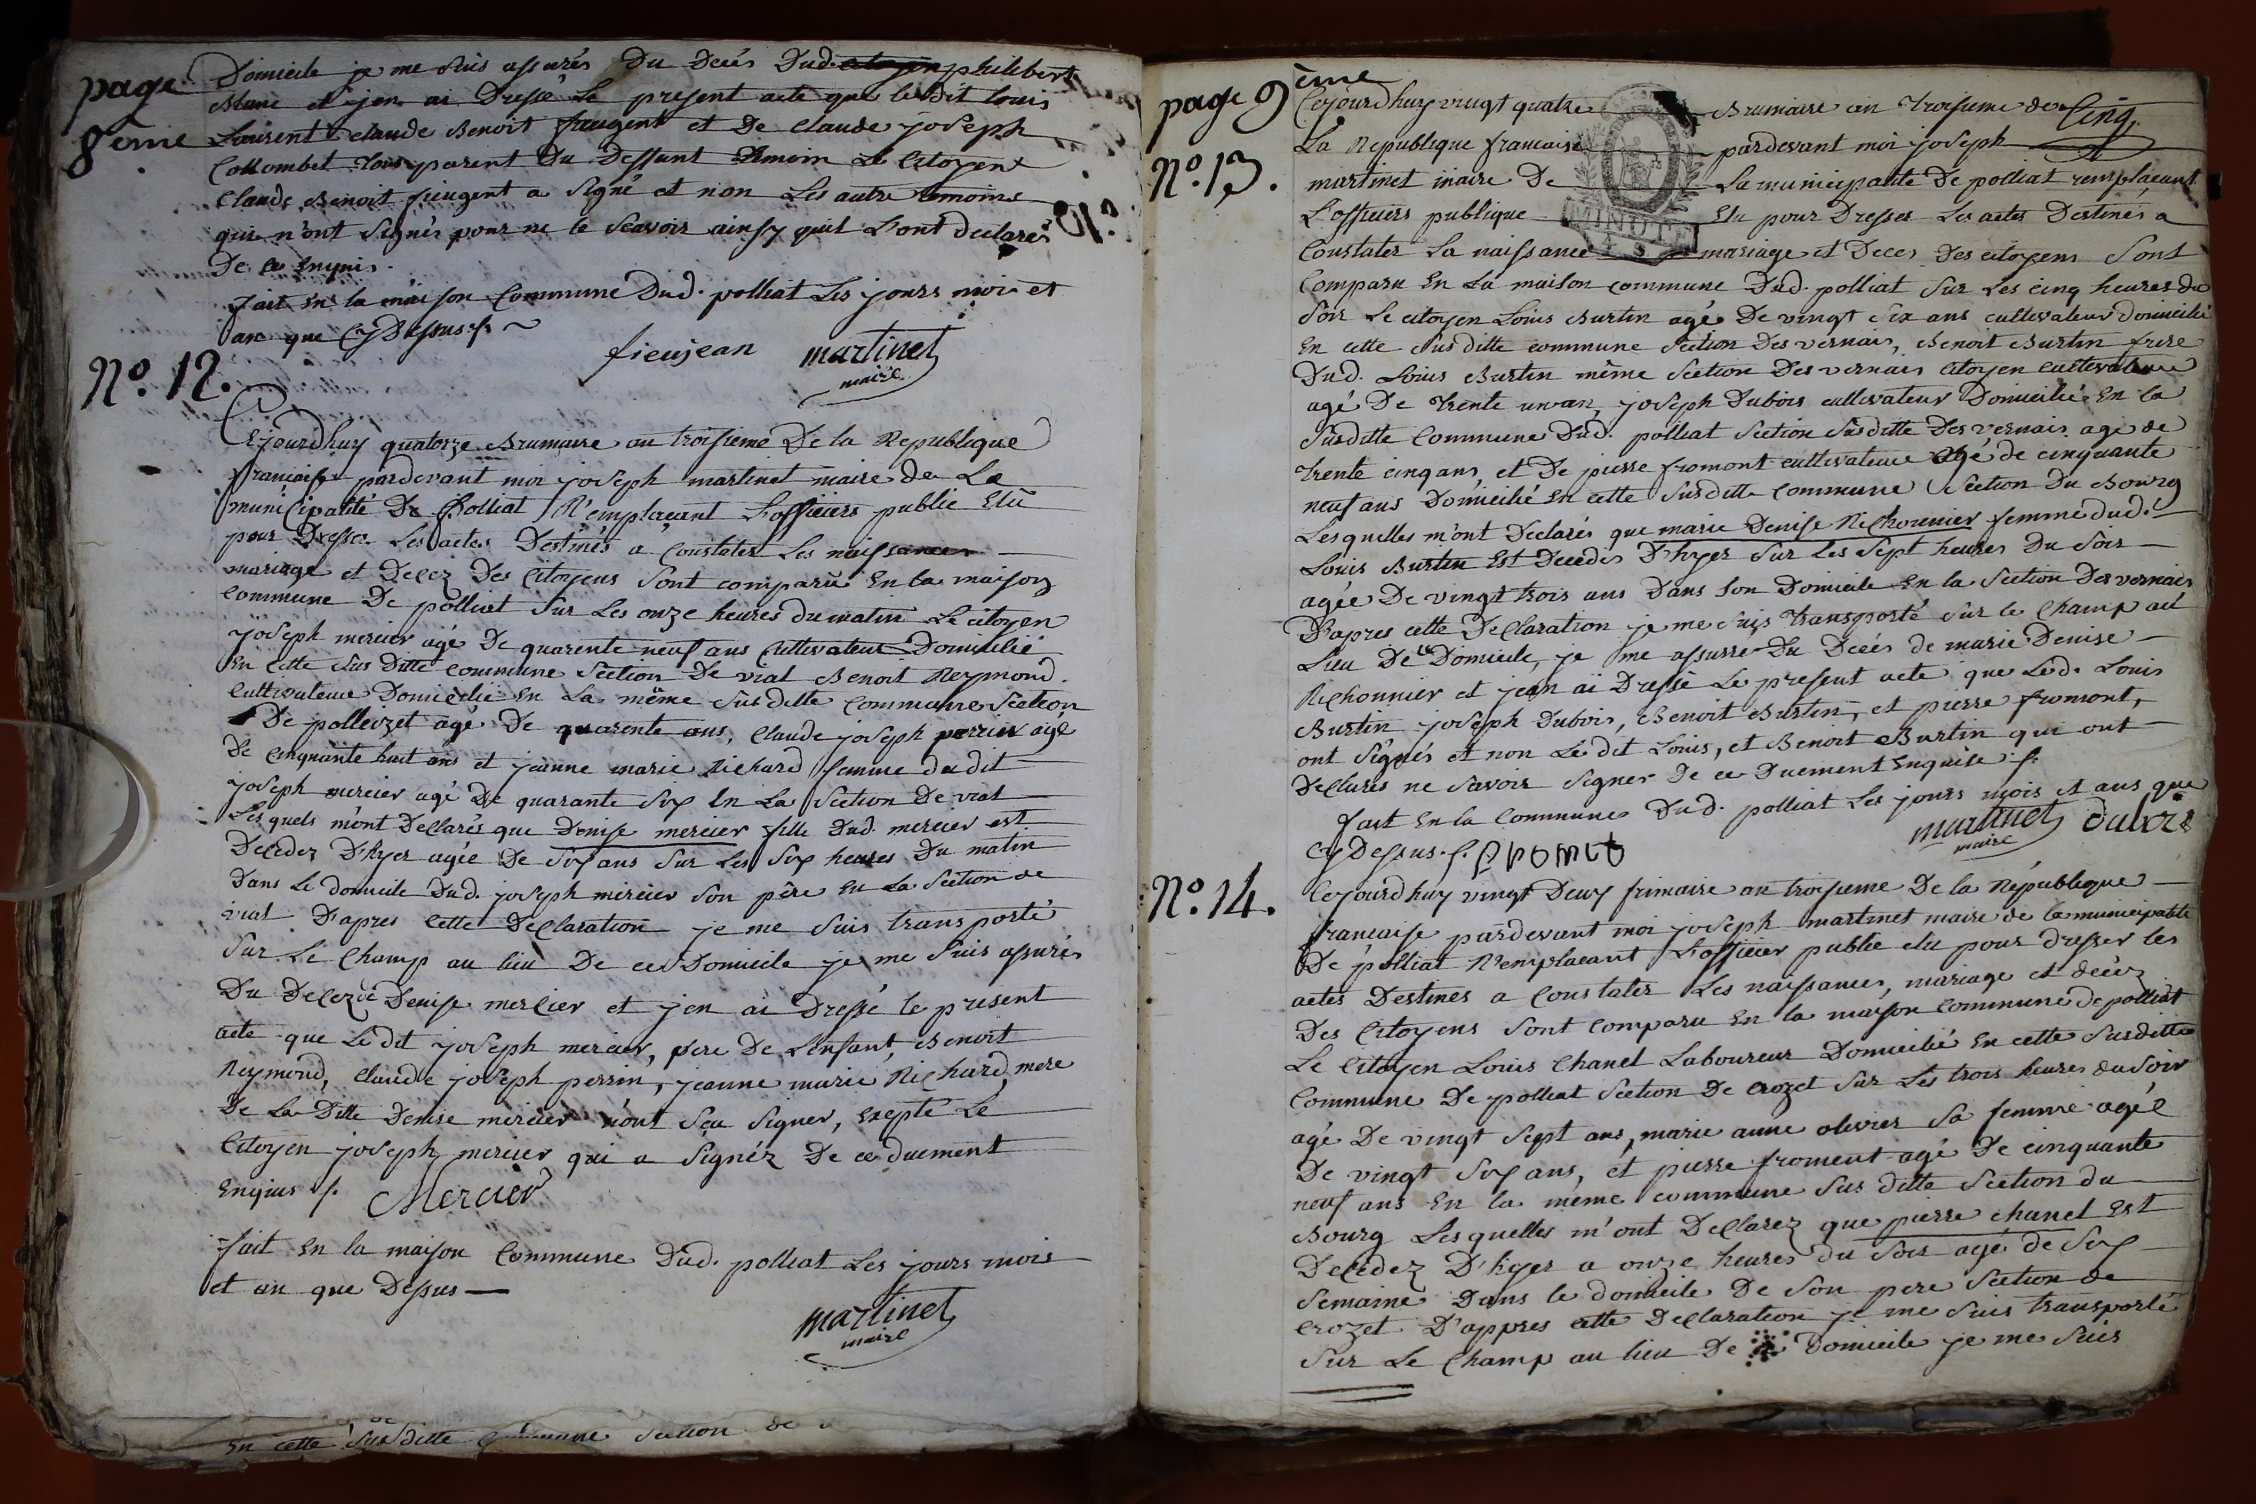 page
8ème
Domicile je me suis assurés Du Decés Dud. citoyen philibert
Blanc et j'en ai Dressé Le present acte que ledit Louis
Laurent claude Benoit fieugent et De claude joseph
Collombet tous parent Du Deffunt temoin Le Citoyen
Claude Benoit fieugent a Signé et non Les autre temoins
qui n'ont Signés pour ne le Scavoir ainsy quil L'ont declarés
De ce Enquis.
fait En la maison Commune Dud. polliat Les jours moi et
an que Cy Dessus ./. ~
fieujean martinet
maire
N.º 12.
Cejourdhuy quatorze Brumaire an troisieme De la Republique
francaise pardevant moi joseph martinet maire de La
municipalité De Polliat Remplacant L'officiers public Elü
pour Dresser Les actes Destinés a Constater Les naissances
mariage et Decez Des Citoyens Sont comparü En la maison
Commune De polliat Sur Les onze heures du matin Le citoyen
joseph mercier agé De quarente neuf ans Cultivateur Domicilié
En cette Sus Ditte Commune Section De viat Benoit Reymond
Cultivateur Domicilié En La même Susditte Commune Section
De polleizet agé De quarente ans, Claude joseph perrin agé
De Cinquante huit ans et jeanne marie Richard femme dudit
joseph mercier agé De quarante Six En La Section De viat
Lesquels m'ont Declarés que Denise mercier fille Dud. mercier est
Decedez D'hyer agée De Six ans Sur Les Six heures Du matin
Dans Le domicile Dud. joseph mercier Son père En La Section de
viat D'apres Cette Declaration je me Suis transporté
Sur Le Champ au lieu De ce Domicile je me Suis assurés
Du Decez de Denise mercier et j'en ai Dressé le present
acte que Ledit joseph mercier, père De L'enfant, Benoit
Reymond, Claude joseph perrin, jeanne marie Richard mere
De La Ditte Denise mercier n'ont Sçu Signer, Excepté Le
Citoyen joseph mercier qui a Signéz De ce duement
Enquis ./. Mercier
fait En la maison Commune Dud. polliat Les jours mois
et an que Dessus —
martinet
maire
En cette Susditte Commune Section de
page 9ème
N.º 13.
Cejourdhuy vingt quatre Brumaire an troisieme de Cinq
La Republique francaise pardevant moi joseph
martinet maire De La municipalité De polliat remplacant
L'officiers publique Elu pour Dresser Les actes Destinés a
Constater La naissance mariage et Deces Des citoyens Sont
MINUTE
Comparu En La maison commune Dud. polliat Sur Les cinq heures du
Soir Le citoyen Louis Burtin agé De vingt Six ans cultivateur domicilié
En cette Susditte commune Section Des vernais, Benoit Burtin frere
Dud. Louis Burtin même Section Des vernais citoyen cultivateur
agé De trente un an, joseph Dubois cultivateur Domicilié En la
Susditte Commune Dud. polliat Section Susditte Des vernais agé de
trente cinq ans, et De pierre fromont cultivateur agé de cinquante
neuf ans Domicilié En cette Susditte Commune Section Du Bourg
Lesquelles m'ont Declarés que marie Denise Richonnier femme dud.
Louis Burtin Est Decedés D'hyer Sur Les Sept heures Du Soir
agée De vingt trois ans Dans Son Domicile En la Section Des vernais
D'apres cette Declaration je me Suis Transporté Sur le Champ au
Lieu De ce Domicile, je me assurre Du Decés de marie Denise
Richonnier et jean ai Dressé Le present acte que Led. Louis
Burtin joseph Dubois, Benoit Burtin, et pierre fromont,
ont Signés et non Ledit Louis, et Benoit Burtin qui ont
Declarés ne Savoir Signer De ce Duement Enquise ./.
fait En la Commune Dud. polliat Les jours mois et ans que
Cy Dessus ./. martinet dubois
maire
N.º 14.
Cejourdhuy vingt Deux frimaire an troisieme De la République
francaise pardevant moi joseph martinet maire de la municipalité
De polliat Remplacant L'officier public elu pour dresser les
actes Destinés a Constater Les naissances, mariage et décéz
Des Citoyens Sont Comparu En la maison Commune de polliat
Le Citoyen Louis Chanel Laboureur Domicilié En cette Susditte
Commune De polliat Section De Crozet Sur Les trois heures du Soir
agé De vingt Sept ans, marie anne olivier Sa femme agéé
De vingt Six ans, et pierre froment agé De cinquante
neuf ans En la même commune Sus ditte Section du
Bourg Lesquelles m'ont Declarez que pierre chanel Est
Decédez D'hyer a onze heures du Soir agé de Six
Semaine Dans le domicile De Son pere Section de
Crozet D'appres cette Declaration je me Suis transporté
Sur Le Champ au lieu De Domicile je me Suis